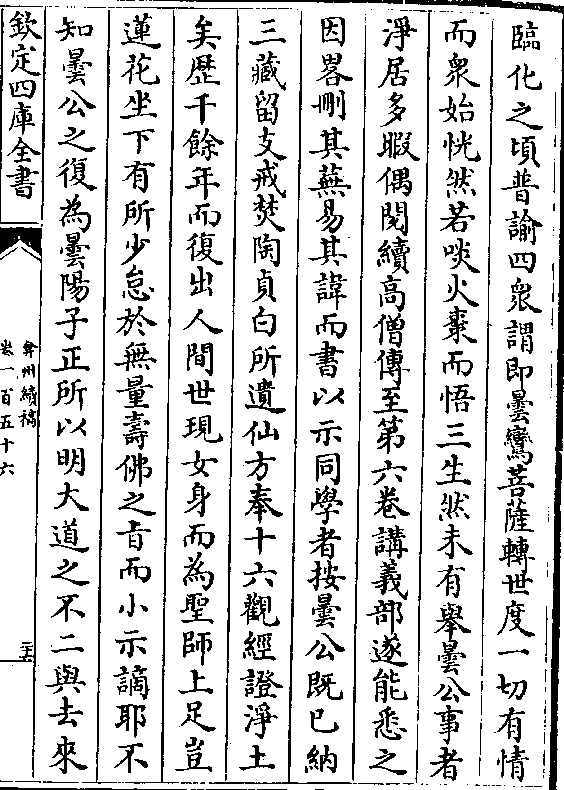 臨化之頃普諭四衆謂即曇鸞菩薩轉世度一切有情
而衆始恍然若啖火棗而悟三生然未有舉曇公事者
淨居多暇偶閱續高僧傳至第六卷講義部遂能悉之
因畧刪其蕪易其諱而書以示同學者按曇公既已納
三藏留支戒焚陶貞白所遺仙方奉十六觀經證淨土
矣歴千餘年而復出人間世現女身而為聖師上足豈
蓮花坐下有所少怠於無量壽佛之旨而小示謫耶不
知曇公之復為曇陽子正所以明大道之不二與去來
欽定四庫全書
弇州續稿
卷一百五十六
二十六